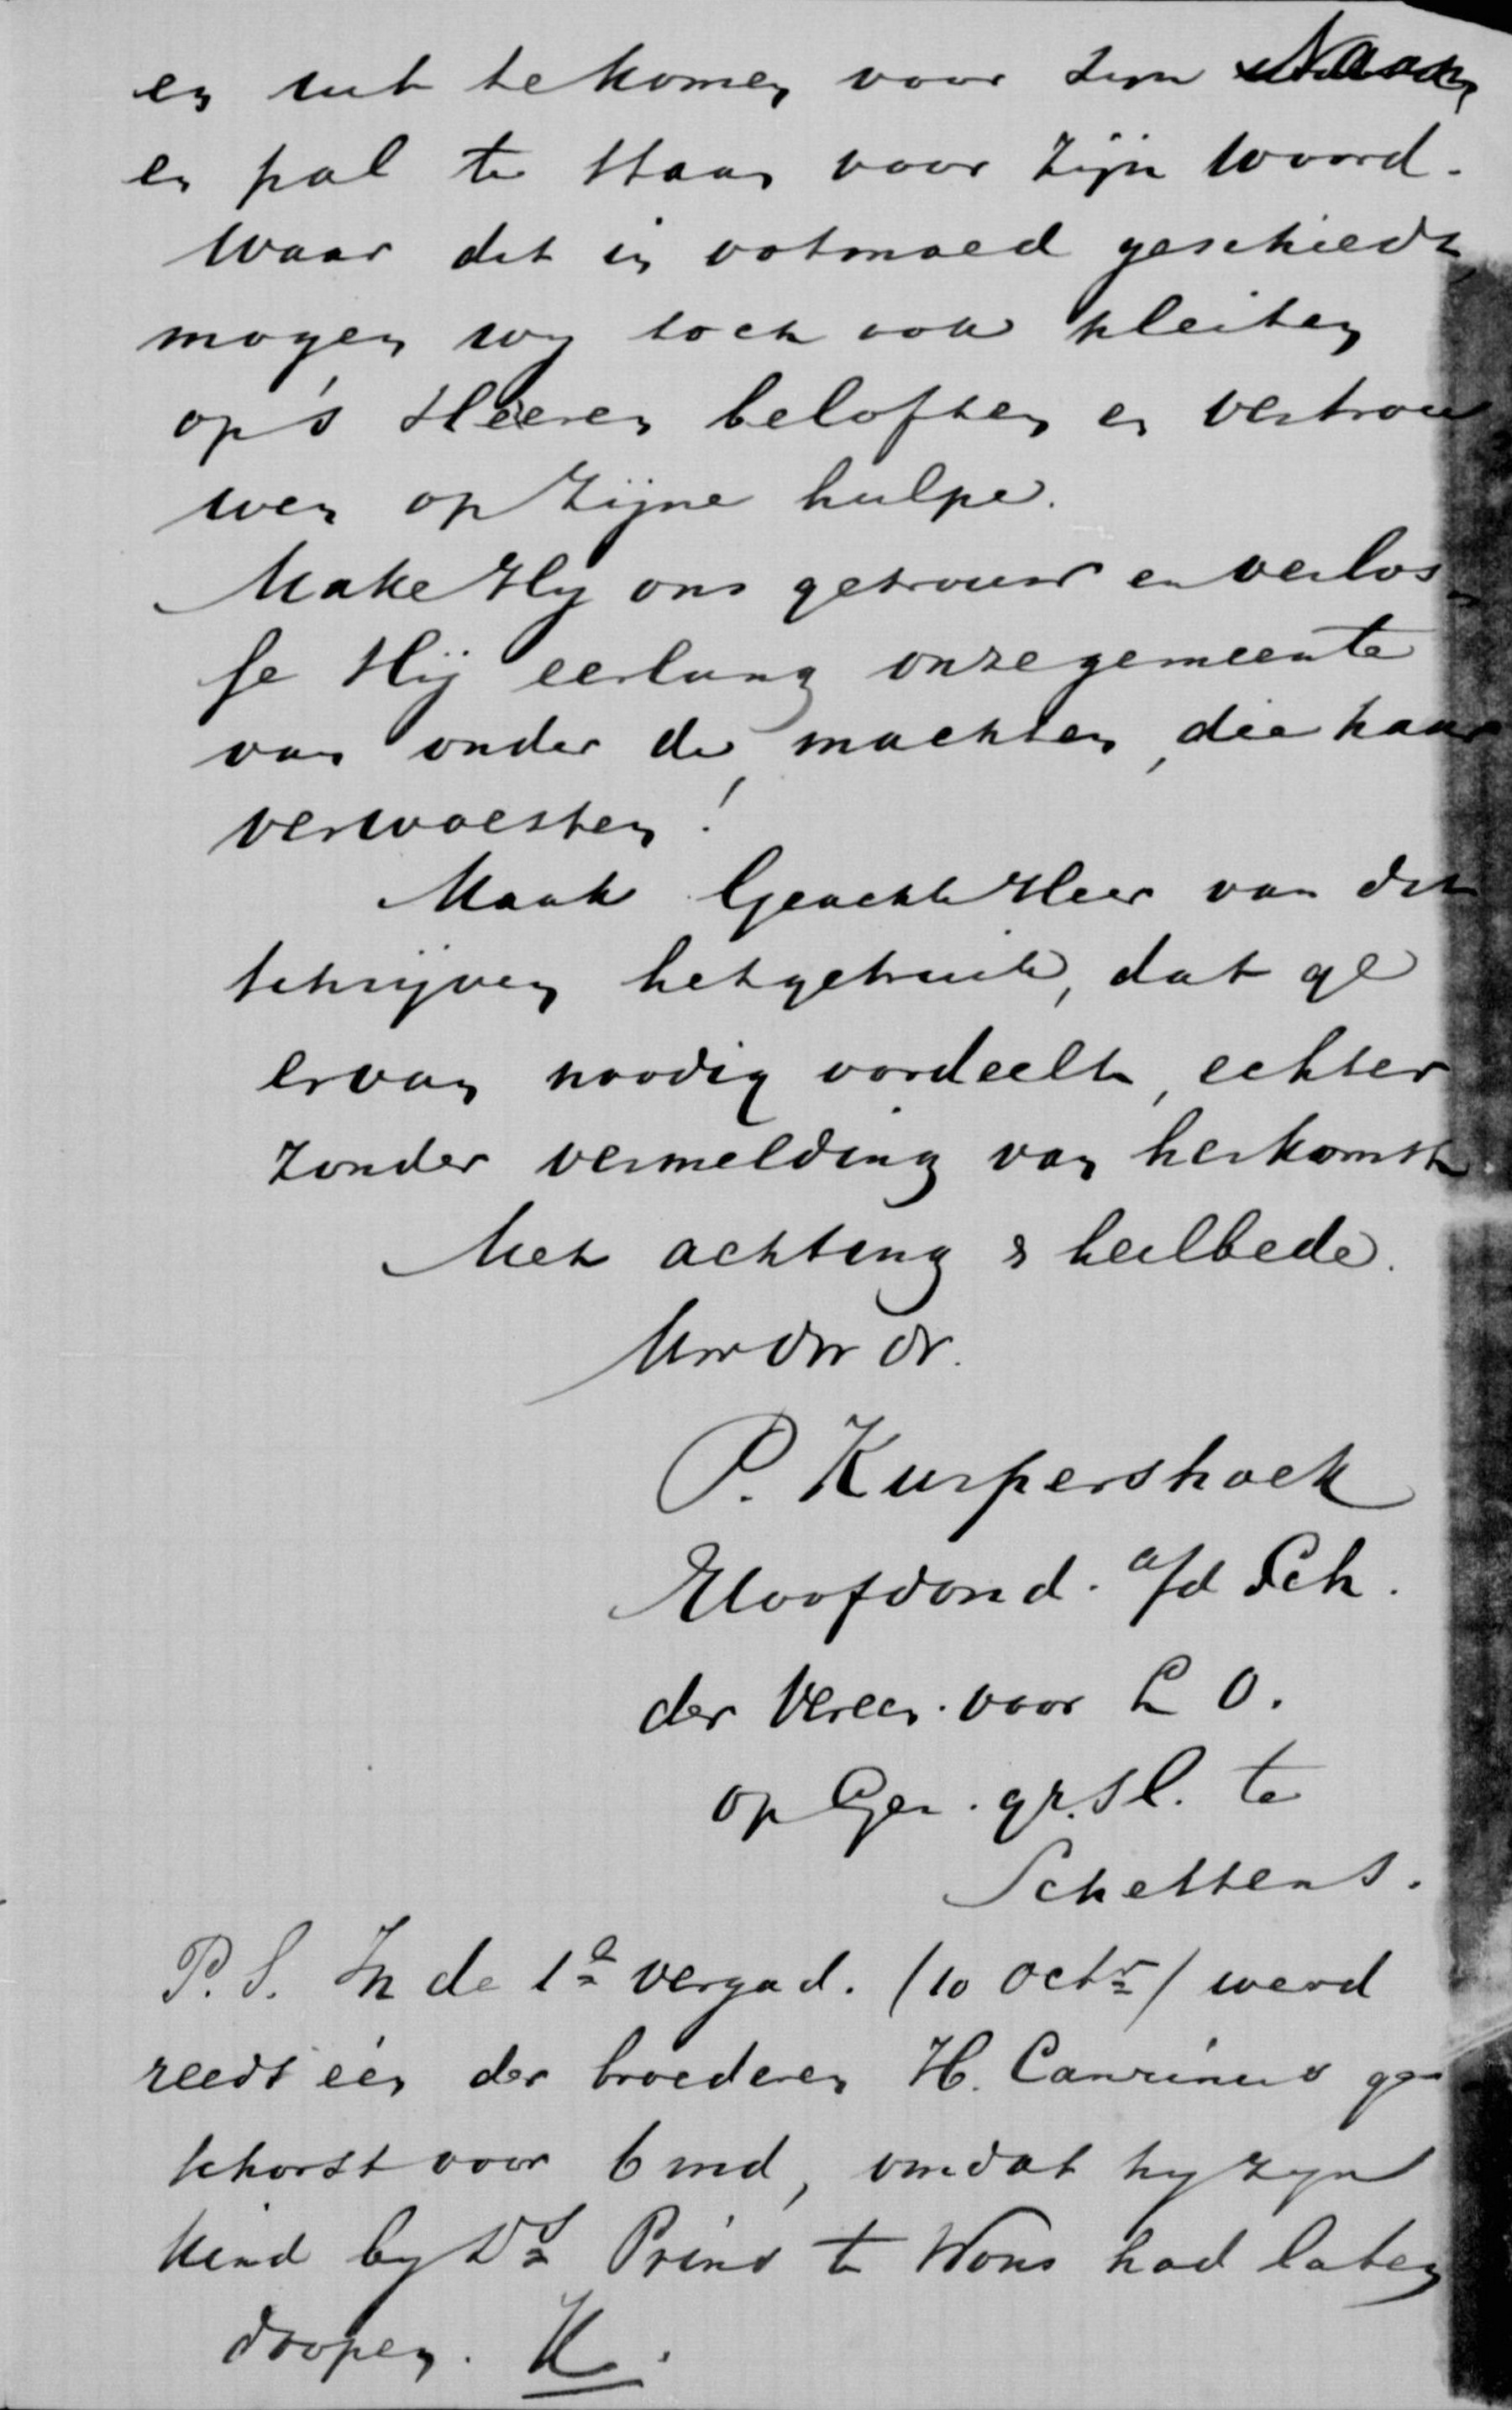 en uit te komen voor zijn Naam
en pal te staan voor Zijn Woord.
Waar dit in ootmoed geschiedt,
mogen wij toch ook pleiten
op 's Heeren beloften en vertrou
wen op Zijne hulpe.
Make Hij ons getrouw en verlos
se Hij eerlang onze gemeente
van onder de machten, die haar
verwoesten!
Maak Geachte Heer van dit
schrijven het gebruik, dat ge
ervan noodig oordeelt, echter
zonder vermelding van herkomst
Met achting & heilbede.
Uw dw dr.
P. Kuipershoek
Hoofdond. a/d Sch.
der Vereen. voor L O.
op Ger. grsl. te
Schettens.
P.S. In de 1e vergad. (10 Octr) werd
reeds één der broederen H. Canrinus ge
schorst voor 6 md, omdat hij zijn
kind bij Ds Prins te Wons had laten
doopen. K.